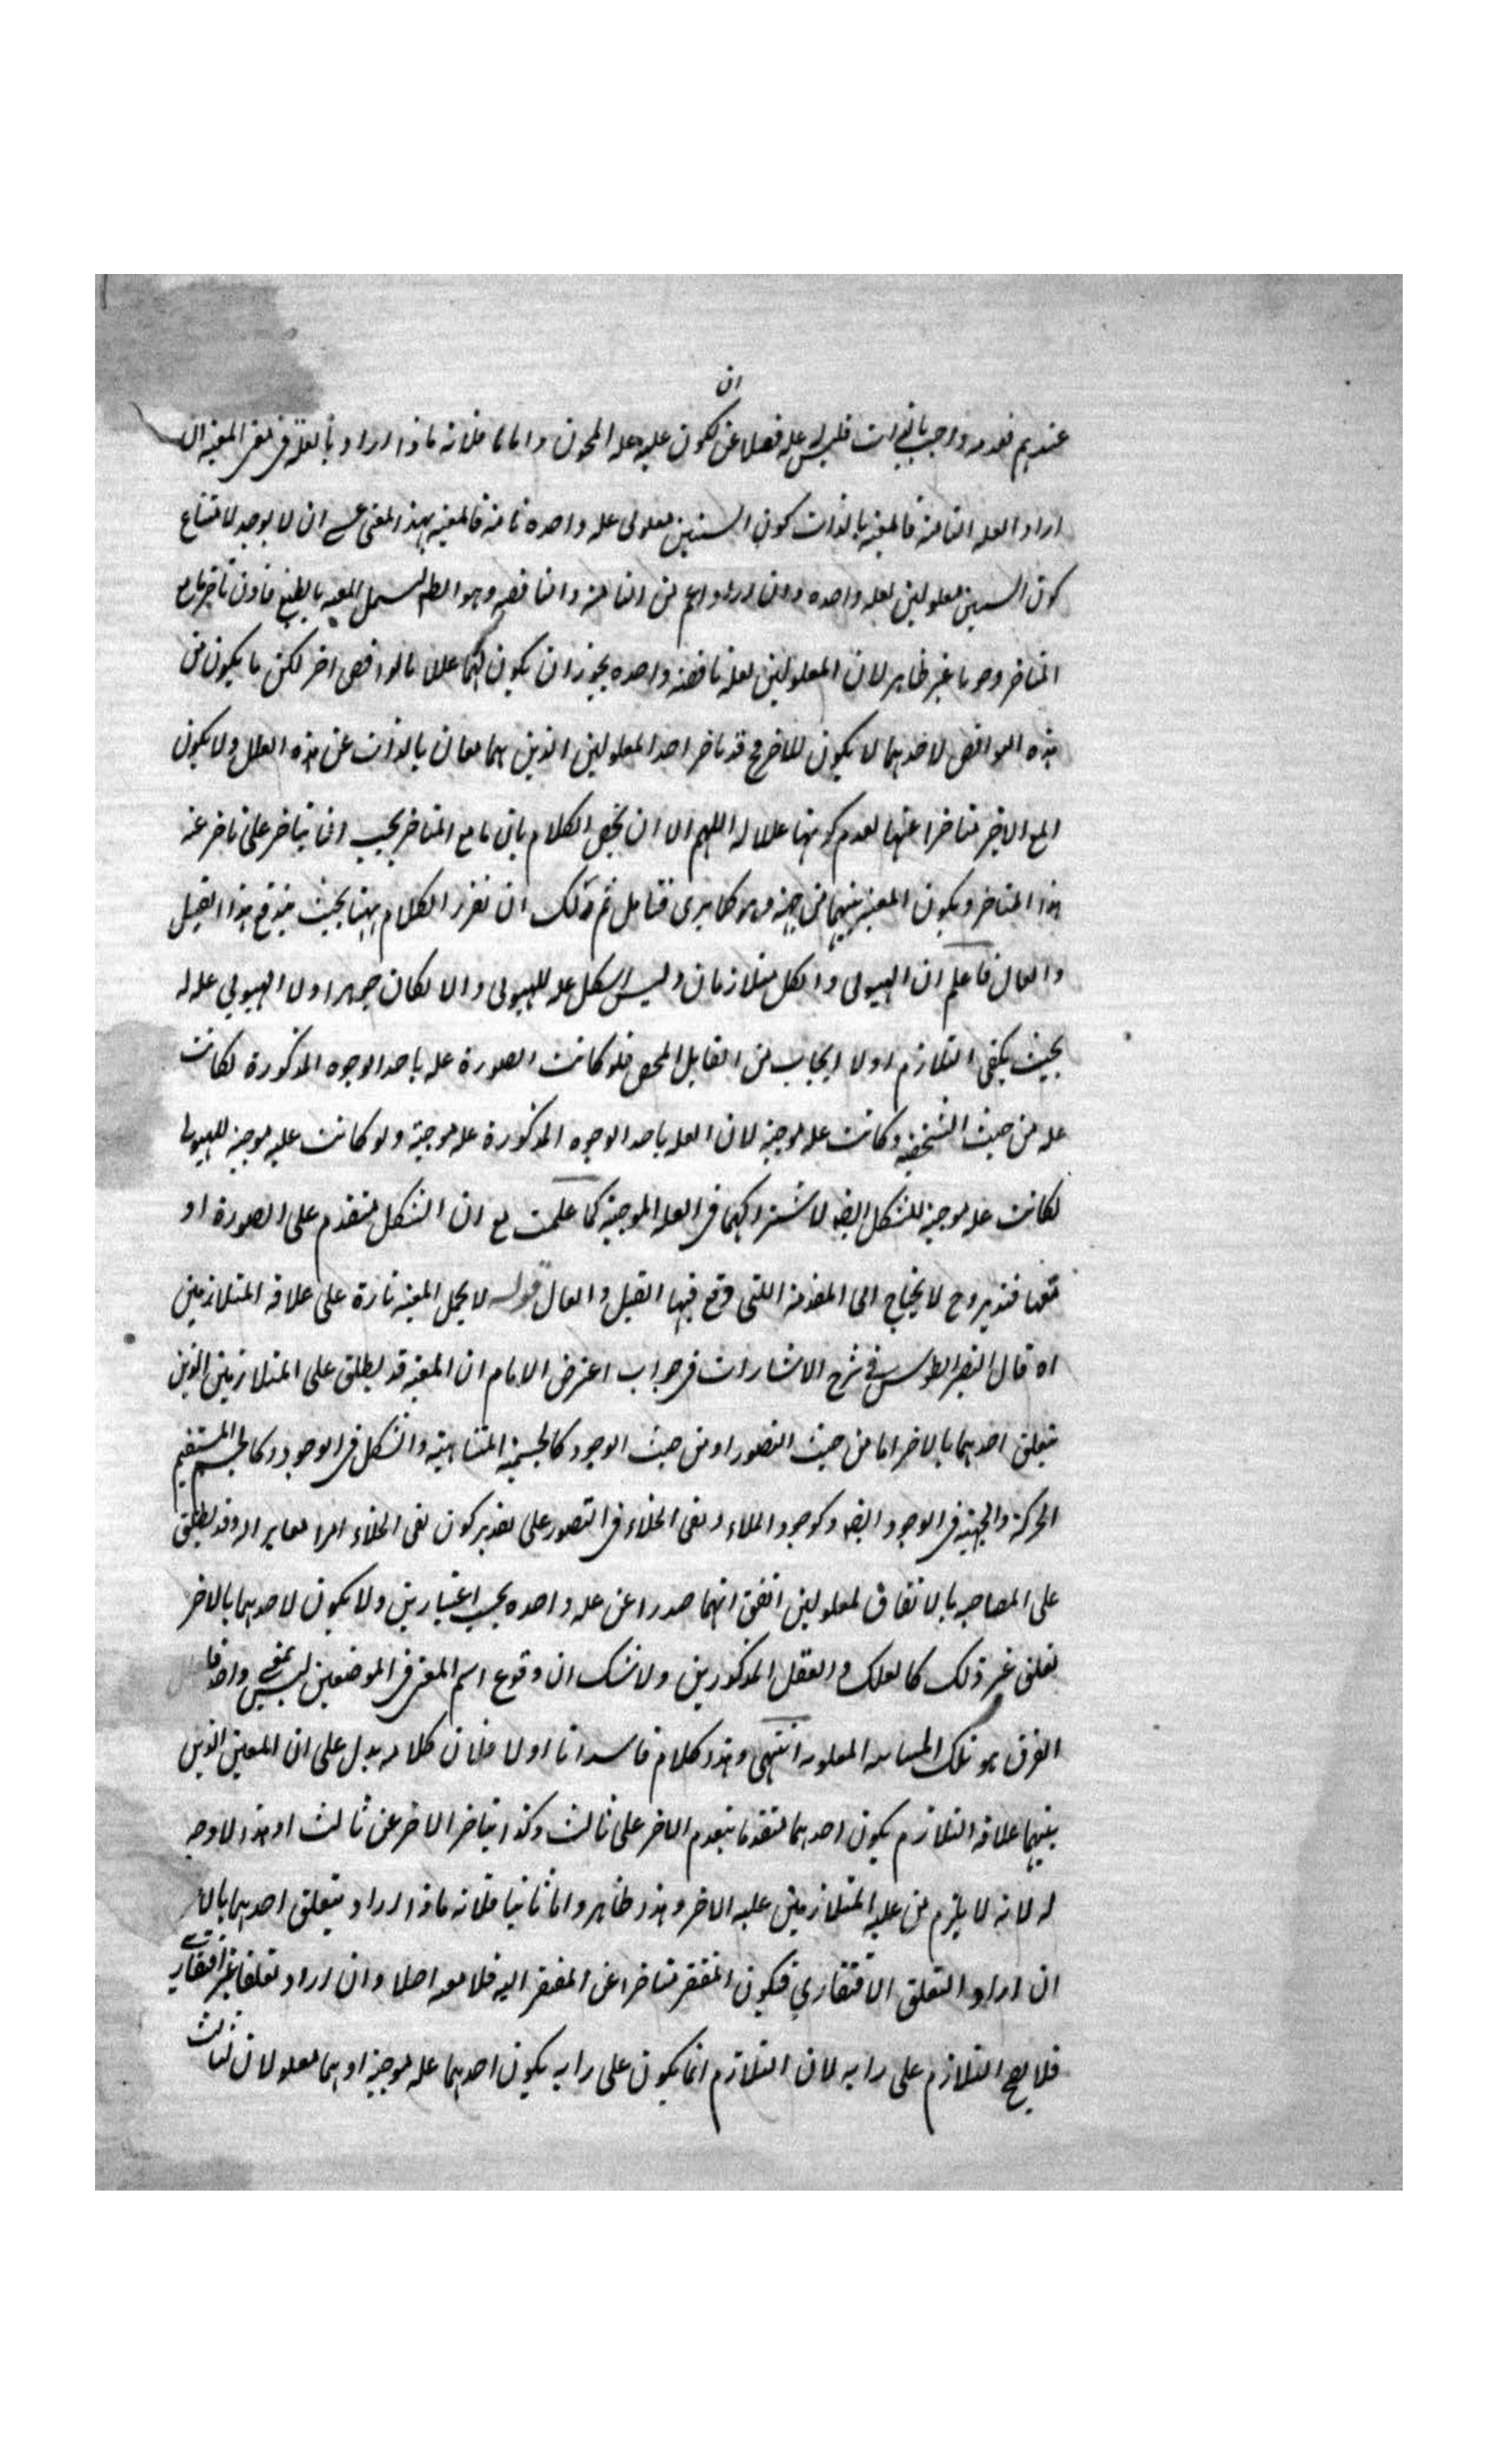 ان
عندهم فعدمه واجب بالذات فليس له علة فضلا عن كون عليه علة المحوى واما ثالثا فلانه ماذا اراد بالعلة فى نفى المعية ان
اراد العلة التامة فالمعية بالذات كون الشيئين معلولى علة واحدة تامة فالمعية بهذا المعنى عسى ان لا يوجد لامتناع
كون الشيئين معلولين لعلة واحدة وان اراد اعم من التامة والناقصة وهو الظ ليشمل المعية بالطبع فاذن تاخر مامع
المتاخر وجوبا غير ظاهر لان المعلولين لعلة ناقصة واحدة يجوز ان يكون لهما علل نواقص اخر لكن ما يكون من
هذه النواقص لاحدهما لا يكون للاخر وقد تاخر احد المعلولين الذين هما معان بالذات عن هذه العلل ولا يكون
المع الاخر متاخرا عنها لعدم كونها عللا له اللهم الا ان يخص الكلام بان مامع المتاخر يجب ان يتاخر على تاخر عنه
هذا المتاخر ويكون المعية بينهما من جهة وهو كما يرى فتامل ثم ولك ان تقرر الكلام ههنا بحيث يندفع هذا القيل
والقال فاعلم ان الهيولى والشكل متلازمان وليس الشكل علة للهيولى والا لكان جوهرا ولا الهيولى علة له
بحيث يكفى التلازم اذ لا ايجاب من القابل المحض فلو كانت الصورة علة باحد الوجوه المذكورة لكانت
علة من حيث التشخص وكانت علة موجبة لان العلة باحد الوجوه المذكورة علة موجبة ولو كانت علة موجبة للهيولى
لكانت علة موجبة للشكل ايضا لاشتراكهما فى العلة الموجبة كما علمت مع ان الشكل متقدم على الصورة او
معها فتدبر وح لا يحتاج الى المقدمة اللتى وقع فيها القيل والقال قوله لا يحمل المعية تارة على علاقة المتلازمين
اه قال النصير الطوسى فى شرح الاشارات فى جواب اعتراض الامام ان المعية قد يطلق على المتلازمين الذين
يتعلق احدهما بالاخر اما من حيث التصور او من حيث الوجود كالجسمية المتناهية والشكل فى الوجود وكالجسم المستقيم
الحركة والجهة فى الوجود ايضا وكوجود الملاء ونفى الخلاء فى التصور على تقدير كون نفى الخلاء امرا مغايرا له وقد يطلق
على المصاحبة بالاتفاق لمعلولين اتفق انهما صدرا عن علة واحدة بحسب اعتبارين ولا يكون لاحدهما بالاخر
تعلق غير ذلك كالفلك والعقل المذكورين ولا شك ان وقوع اسم المعية فى الموضعين ليس بمعنى واحد فا
الفرق هو تلك المباينة المعلومة انتهى وهذا كلام فاسد اما اولا فلان كلامه يدل على ان المعين الذين
بينهما علاقة التلازم يكون احدهما متقدما بتقدم الاخر على ثالث وكذا يتاخر الاخر عن ثالث اه وهذا لا وجه
له لانه لا يلزم من علية المتلازمين علية الاخر وهذا ظاهر واما ثانيا فلانه ماذا اراد بتعلق احدهما بالاخر
ان اراد التعلق الافتقارى فيكون المفتقر متاخرا عن المفتقر اليه فلا معية اصلا وان اراد تعلقا غير افتقارى
فلا يصح التلازم على رايه لان التلازم انما يكون على رايه يكون احدهما علة موجبة او هما معلولان لثالث